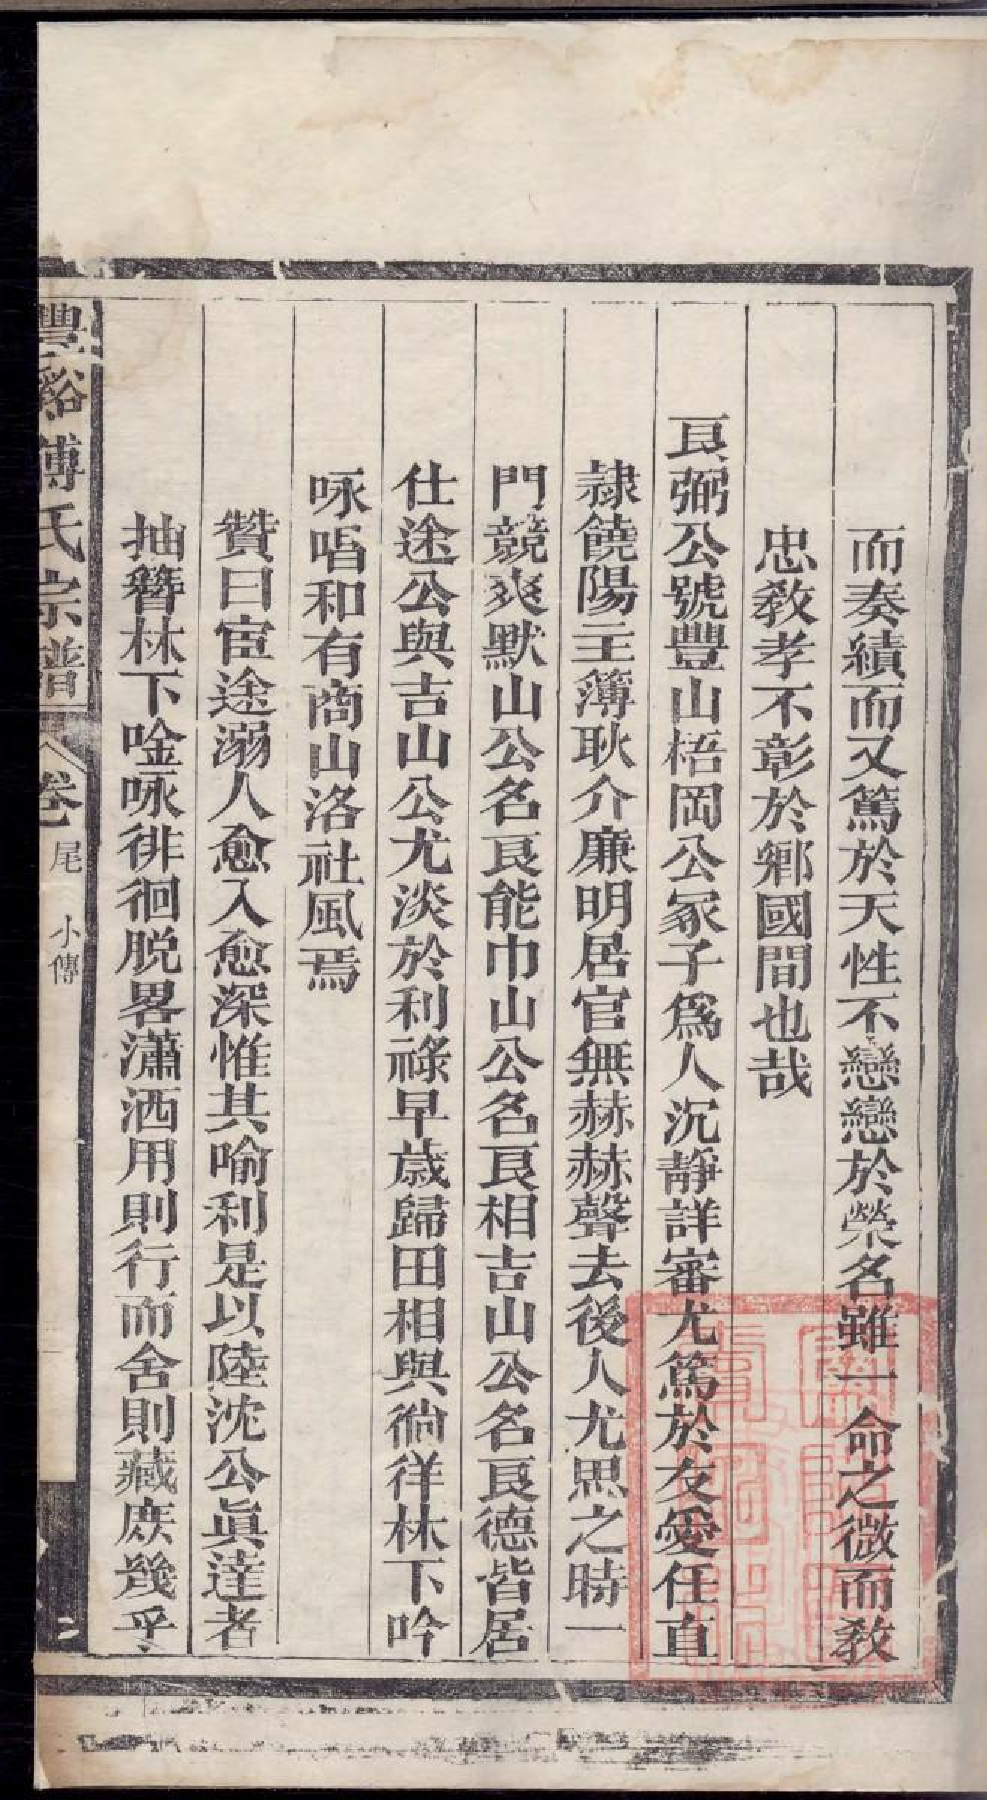 而奏績而又篤於天性不戀戀於榮名雖一命之微而敎
忠敎孝不彰於鄉國間也哉
良弼公號豐山梧岡公冢子爲人沉靜詳審尤篤於友愛任直
隷饒陽主簿耿介廉明居官無赫赫聲去後人尤思之時一
門競爽默山公名良能巾山公名良相吉山公名良德皆居
仕途公與吉山公尤淡於利祿早歲歸田相與徜徉林下吟
咏唱和有商山洛社風焉
贊曰宦途溺人愈入愈深惟其喻利是以陸沈公眞達者
抽簪林下唫咏徘徊脱畧瀟洒用則行而舍則藏庶幾乎
豐谿傅氏宗譜
卷尾
小傳
二